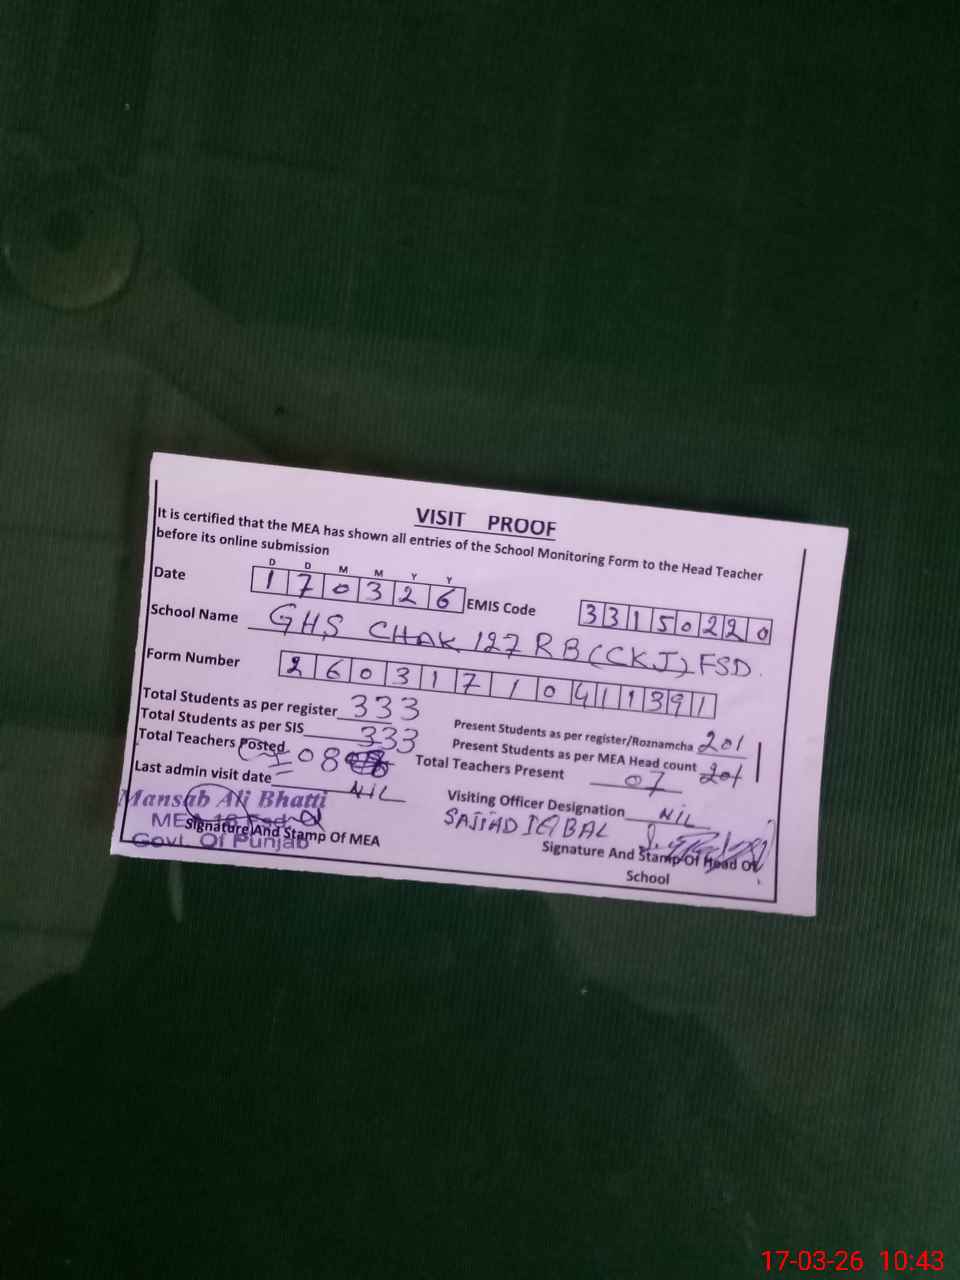 VISIT PROOF
It is certified that the MEA has shown all entries of the School Monitoring Form to the Head Teacher
before its online submission
D D M M Y Y
Date 1 7 0 3 2 6 EMIS Code 3 3 1 5 0 2 2 0
School Name GHS CHAK 127 RB (CKJ) FSD.
Form Number 2 6 0 3 1 7 1 0 4 1 1 3 9 1
Total Students as per register 333
Present Students as per register/Roznamcha 201
Total Students as per SIS 333
Present Students as per MEA Head count 201
Total Teachers Posted 08
Total Teachers Present 07
Last admin visit date NIL
Visiting Officer Designation NIL
Mansab Ali Bhatti
SAJJAD IQBAL
Signature And Stamp Of MEA
Govt. Of Punjab
Signature And Stamp Of Head Of
School
17-03-26 10:43